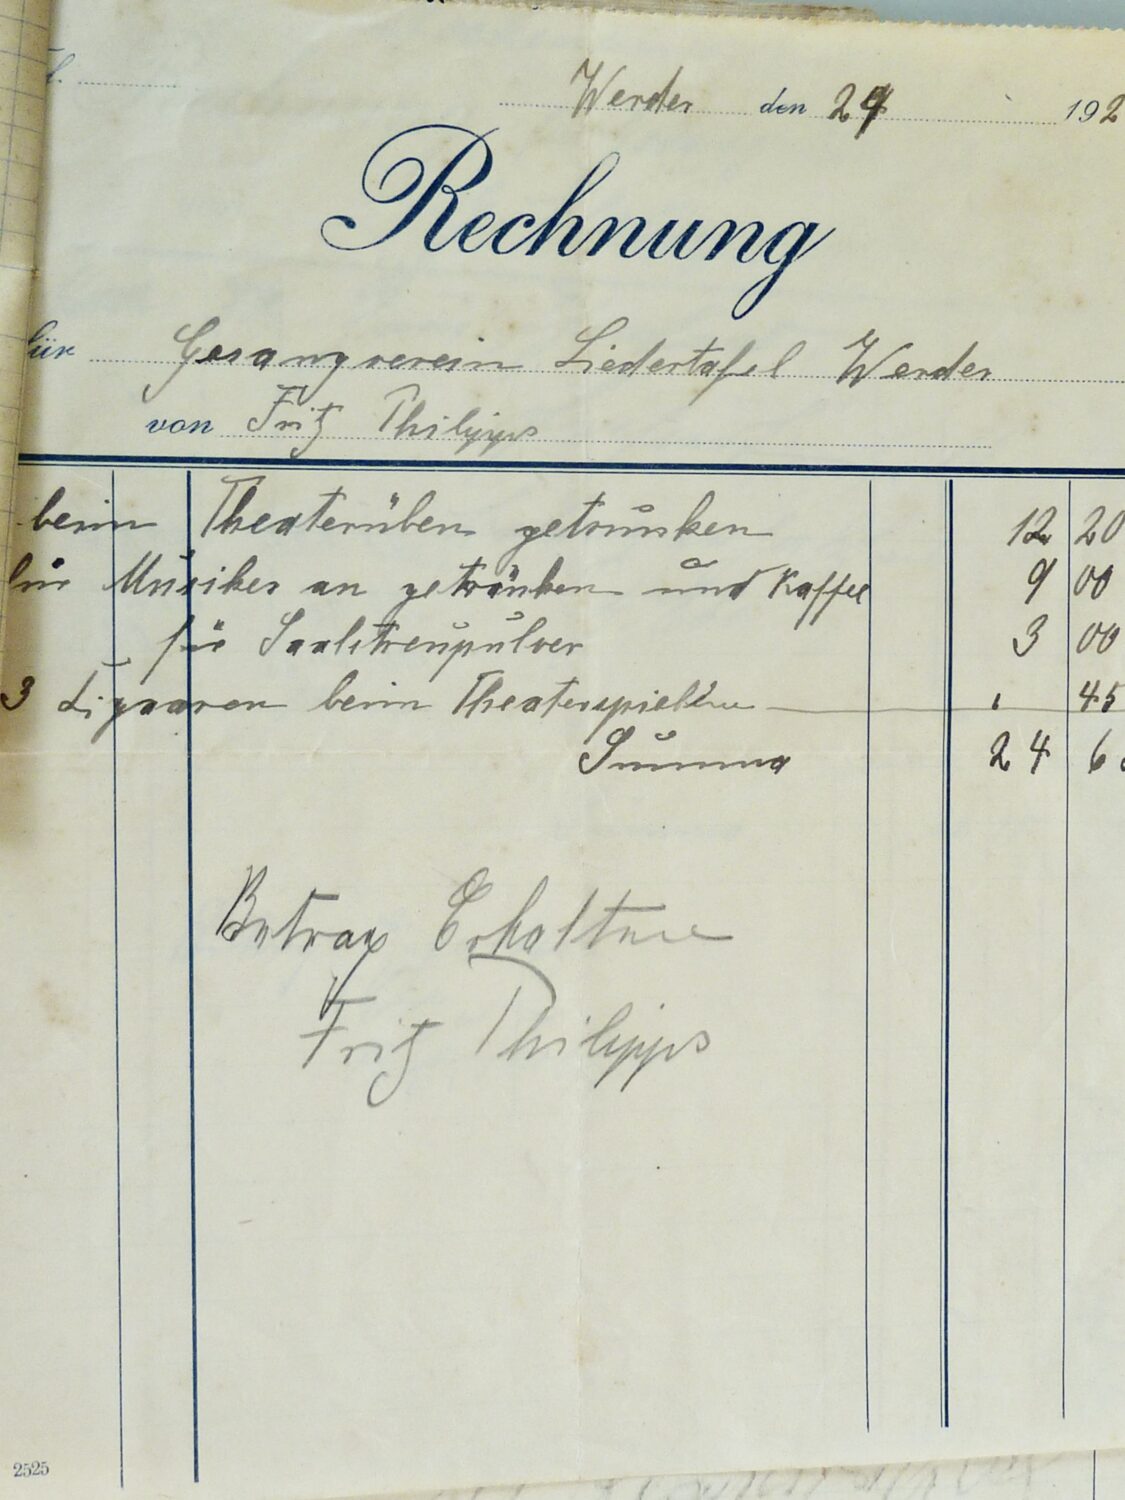 Werder den 24 192
Rechnung
für Gesangverein Liedertafel Werder
von Fritz Philipps
beim Theaterüben getrunken 12 20
für Musiker an getränken und Kaffee 9 00
für Saalstreupulver 3 00
3 Zigaaren beim Theaterspielen 45
Summa 24 6
Betrag Erhalten
Fritz Philipps
2525